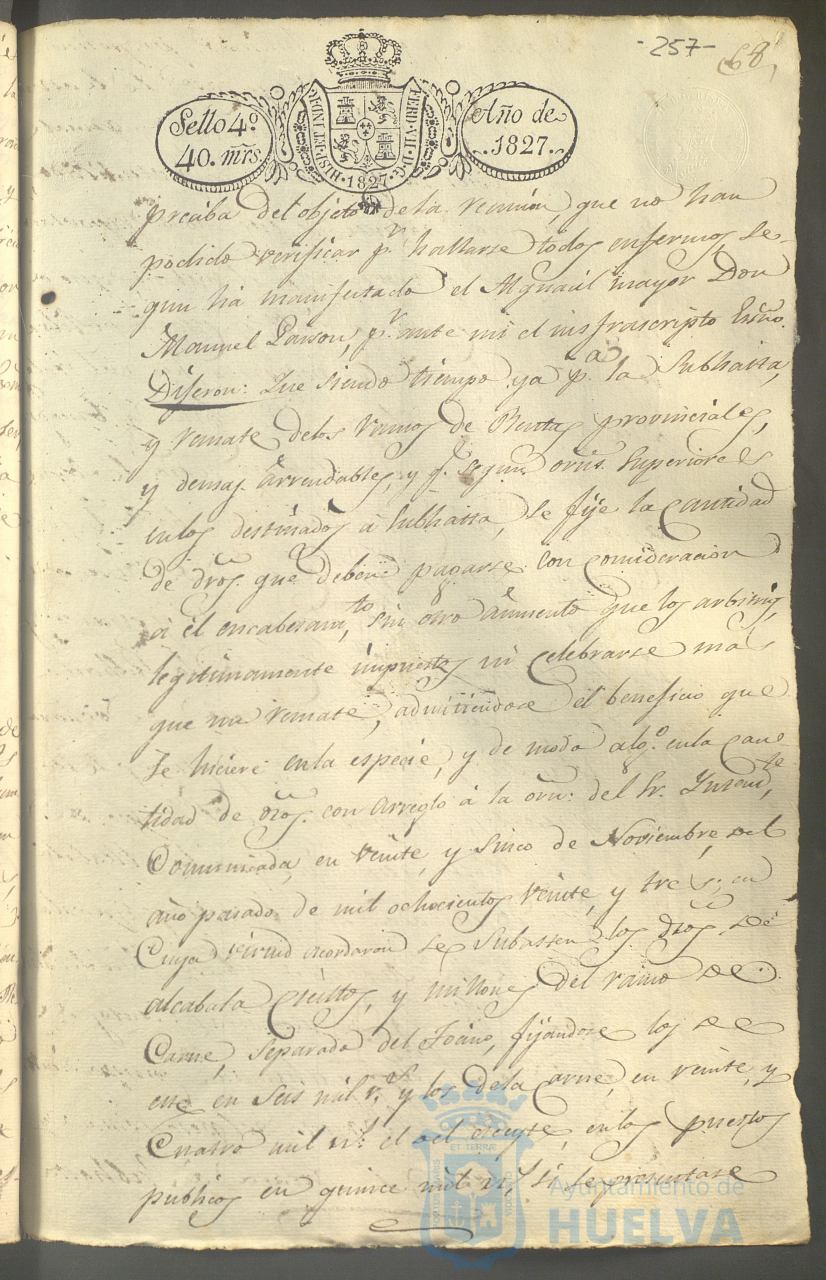 -257-
68,
Sello 4º
40. mrs.
HISP. ET IND. R.
FERD. VII. D. G.
· 1827 ·
Año de
.1827.
preciba del objeto de la reunion, que no han
podido verificar pr. hallarse todos enfermos, se-
gun ha manifestado el Alguacil mayor Don
Manuel Pawon, pr. ante mi el infrascripto Essno.
Dijeron: Que siendo tiempo ya pª. la Subhasta,
y remate delos ramos de Rentas provinciales,
y demas Arrendables, y q. segun orns. Superiores
en los destinados á Subhasta, se fije la Cantidad
de dros. que deben pagarse con consideracion
á el encabezamto, sin otro aumento que los arbitrios
legitimamente impuestos, ni Celebrarse mas
que un remate, admitiendose el beneficio que
se hiciere en la especie, y de modo algº. enla Can-
tidad de dros. con Arreglo á la orn: del Sr. Yntente,
Comunicada, en veinte, y Sinco de Noviembre, del
año pasado de mil ochocientos veinte, y tres; en
Cuya virtud acordaron se Subasten los dros. de
alcabala Cientos, y millones del ramo de
Carne, separado del Tosino, fijandose los de
este en Seis mil rs. y los dela Carne, en veinte, y
Cuatro mil rs. el del aceyte, en los puestos
publicos en quince mil rs, si se presentase
Ayuntamiento de
HUELVA